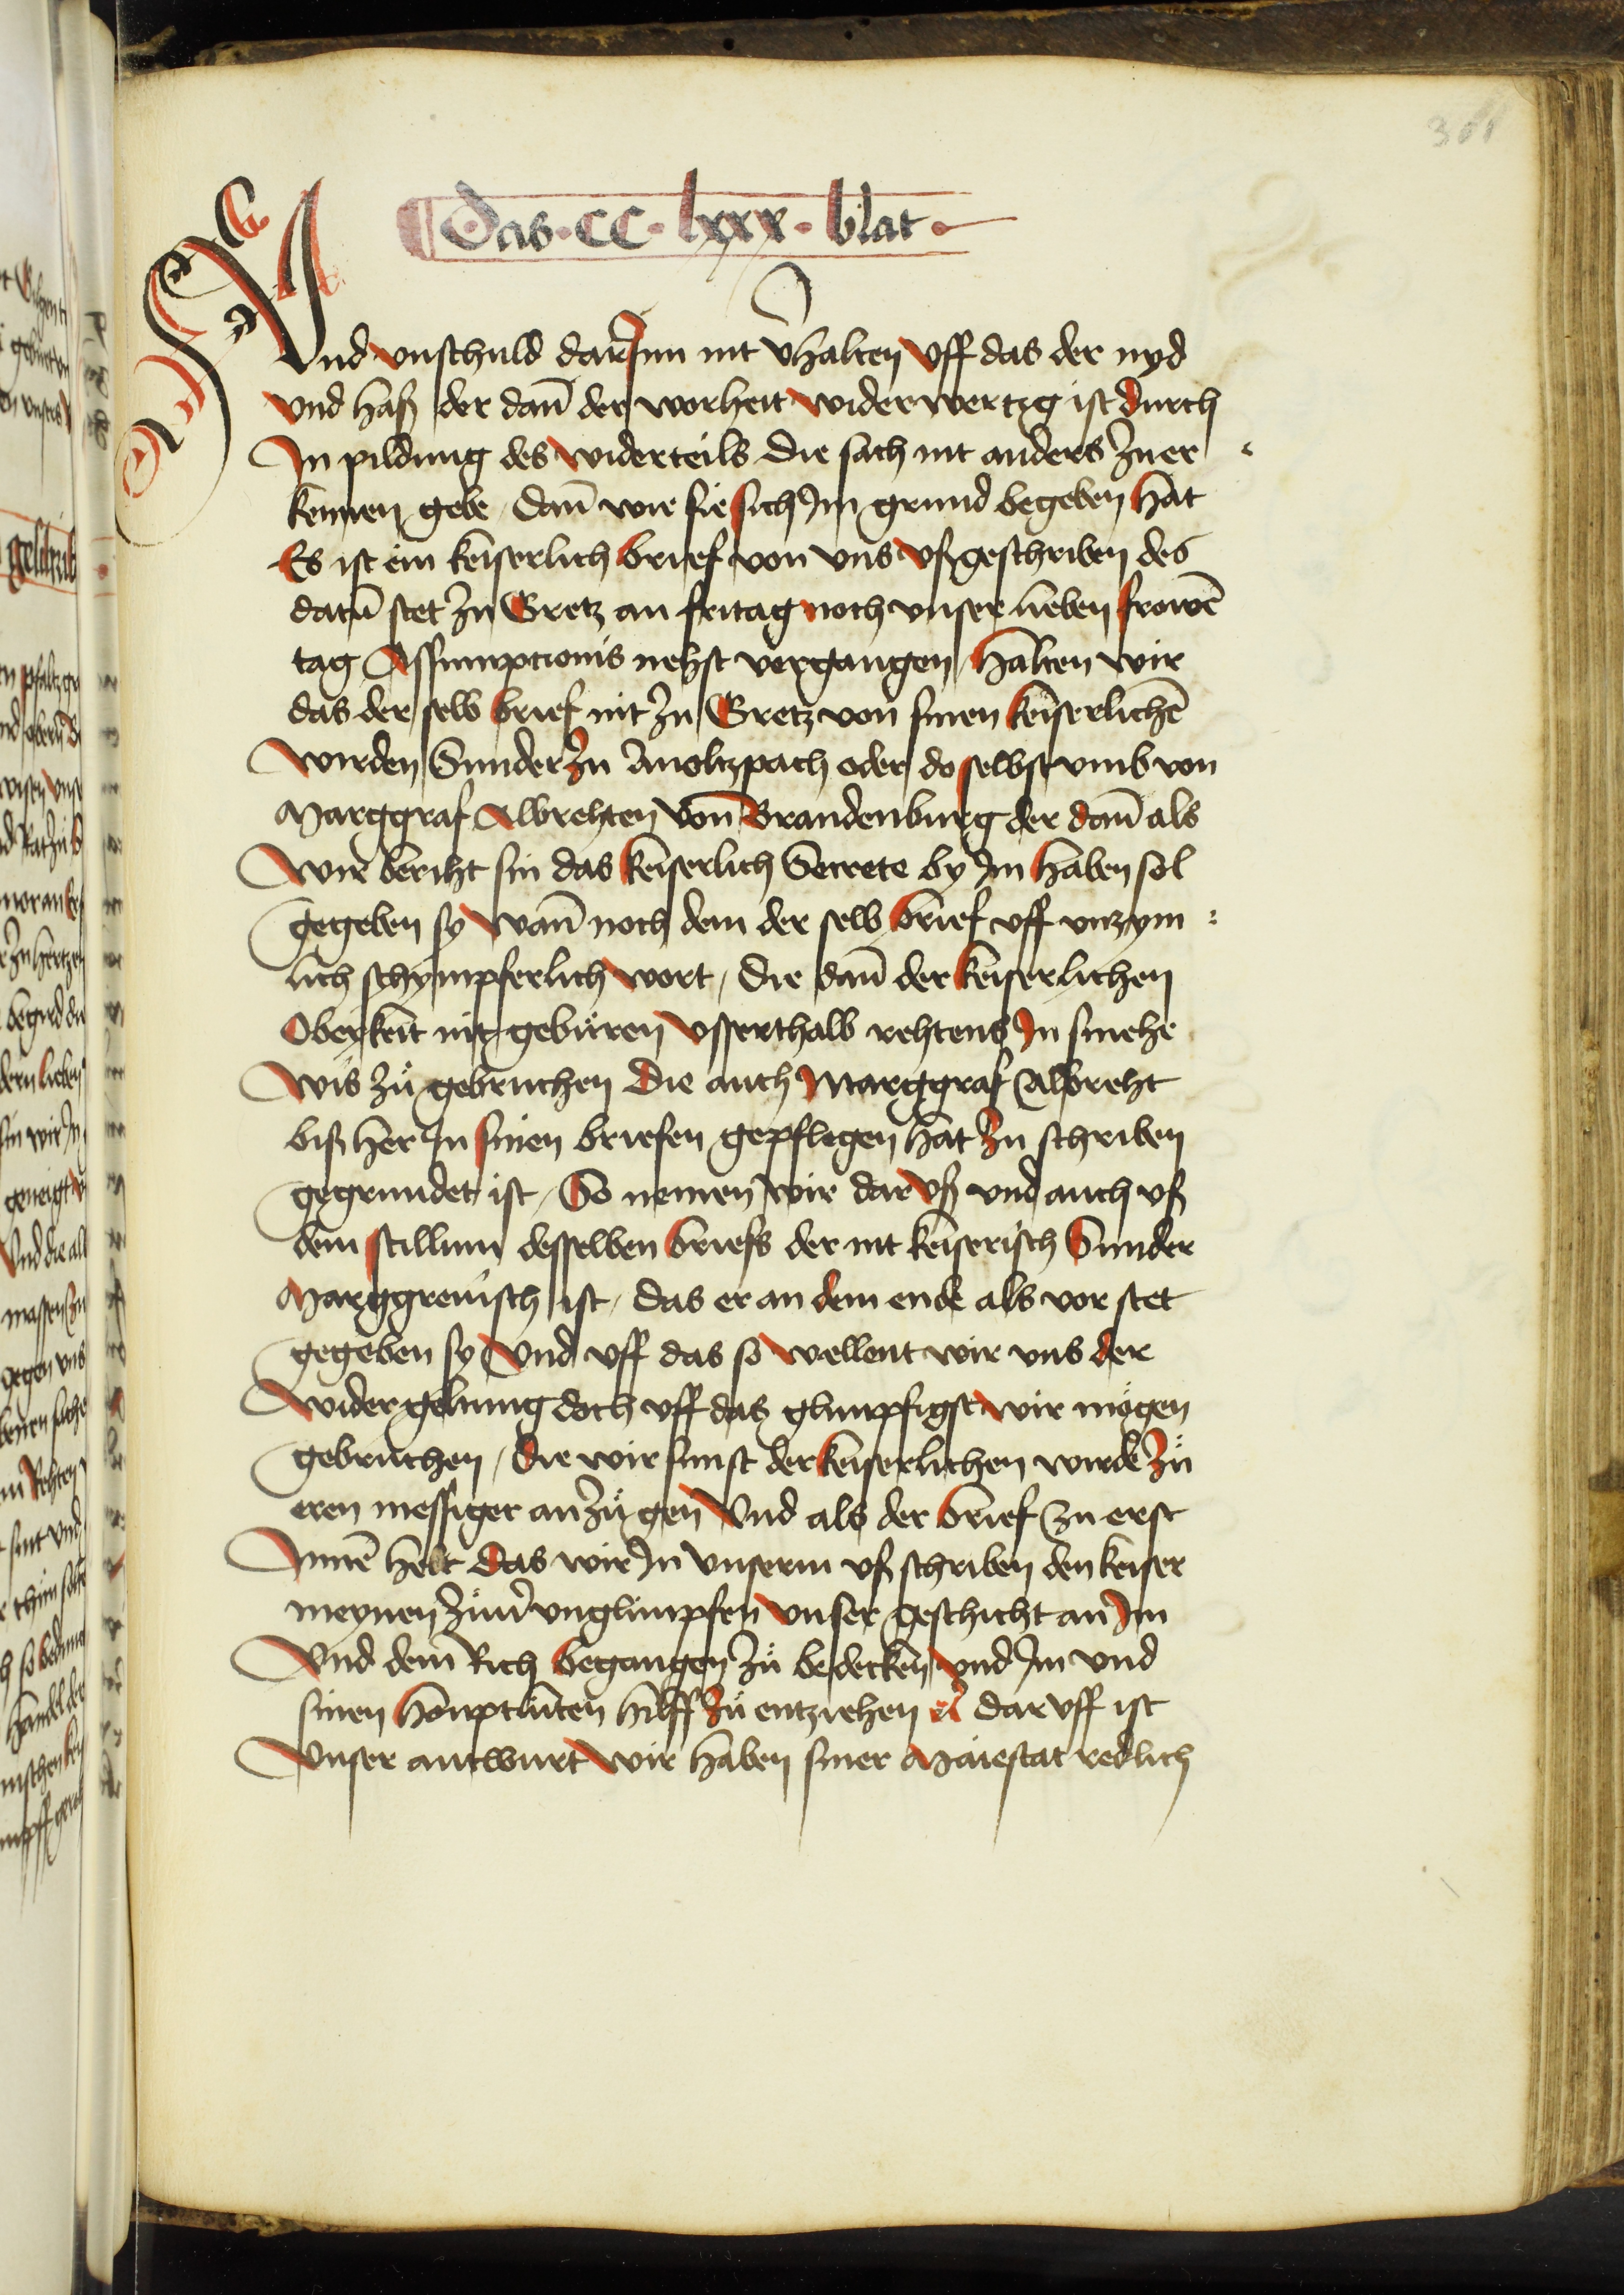 Das · CC · lxxx · blat ·
Vnd vnschuld dar Jnn nit v̄halten vff das der nyd
vnd haß der dañ der worheit widerwertzg ist durch
Jn pildung des widerteils die sach nit anders zu er
kennen gebe / dañ wie sie sich Jm grund begeben hat
Es ist ein keiserlich brief von vns vßgeschriben des
datū stet zu Gretz an fritag noch vnser lieben frowē
tag Assumptionis nehst vergangen / halten wir
das der selb brief nit zu Gretz von sinen keiserlichē
wirden Sunder zu Anoltzpach oder do selbst vmb von
Marggraf Albrehten von Brandenburg der dañ als
wir beriht sin das keiserlich Secrete by Jm haben sol
gegeben sy wañ noch dem der selb brief vff vnzym
lich schympferlich wort / die dañ der keiserlichen
Oberkeit nit gebüren vsserthalb rehtens Jn smehe
wis zů gebruchen die auch Marggraf Albreht
biß her Jn sinen briefen gepflegen hat zu schriben
gegrundet ist / So nemen wir dar vß vnd auch vß
dem stillum desselben briefs der nit keiserisch Sunder
Marggreuisch ist / das er an dem ende als vor stet
gegeben sy Vnd vff das so wellent wir vns der
widergeltung doch vff das glimpfigst wir mögen
gebruchen / die wir sunst der keiserlichen wirde zů
eren messiger anzůgen Vnd als der brief zu erst
Jnnē helt das wir Jn vnserm vß schriben den keiser
meynen zů vnglimpfen vnser geschicht an Jm
Vnd dem Rich begangen zů bedecken vnd Jm vnd
sinen houptlüten hilff zů entziehen dar vff ist
Vnser antwurt wir haben siner Maiestat redlich